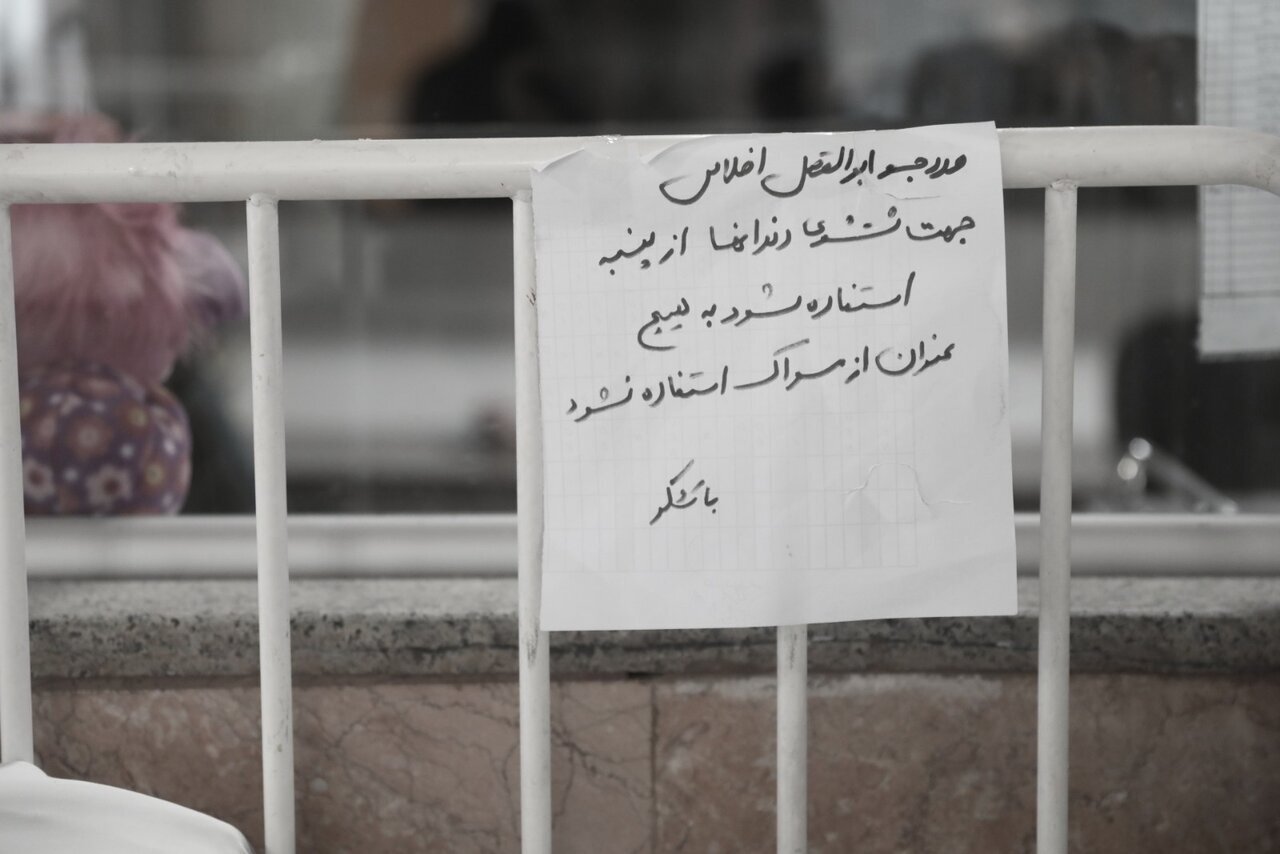 مددجو ابوالفضل اخلاص
جهت شستشوی دندانها از پنبه
استفاده شود به هیچ
عنوان از مسواک استفاده نشود
باتشکر